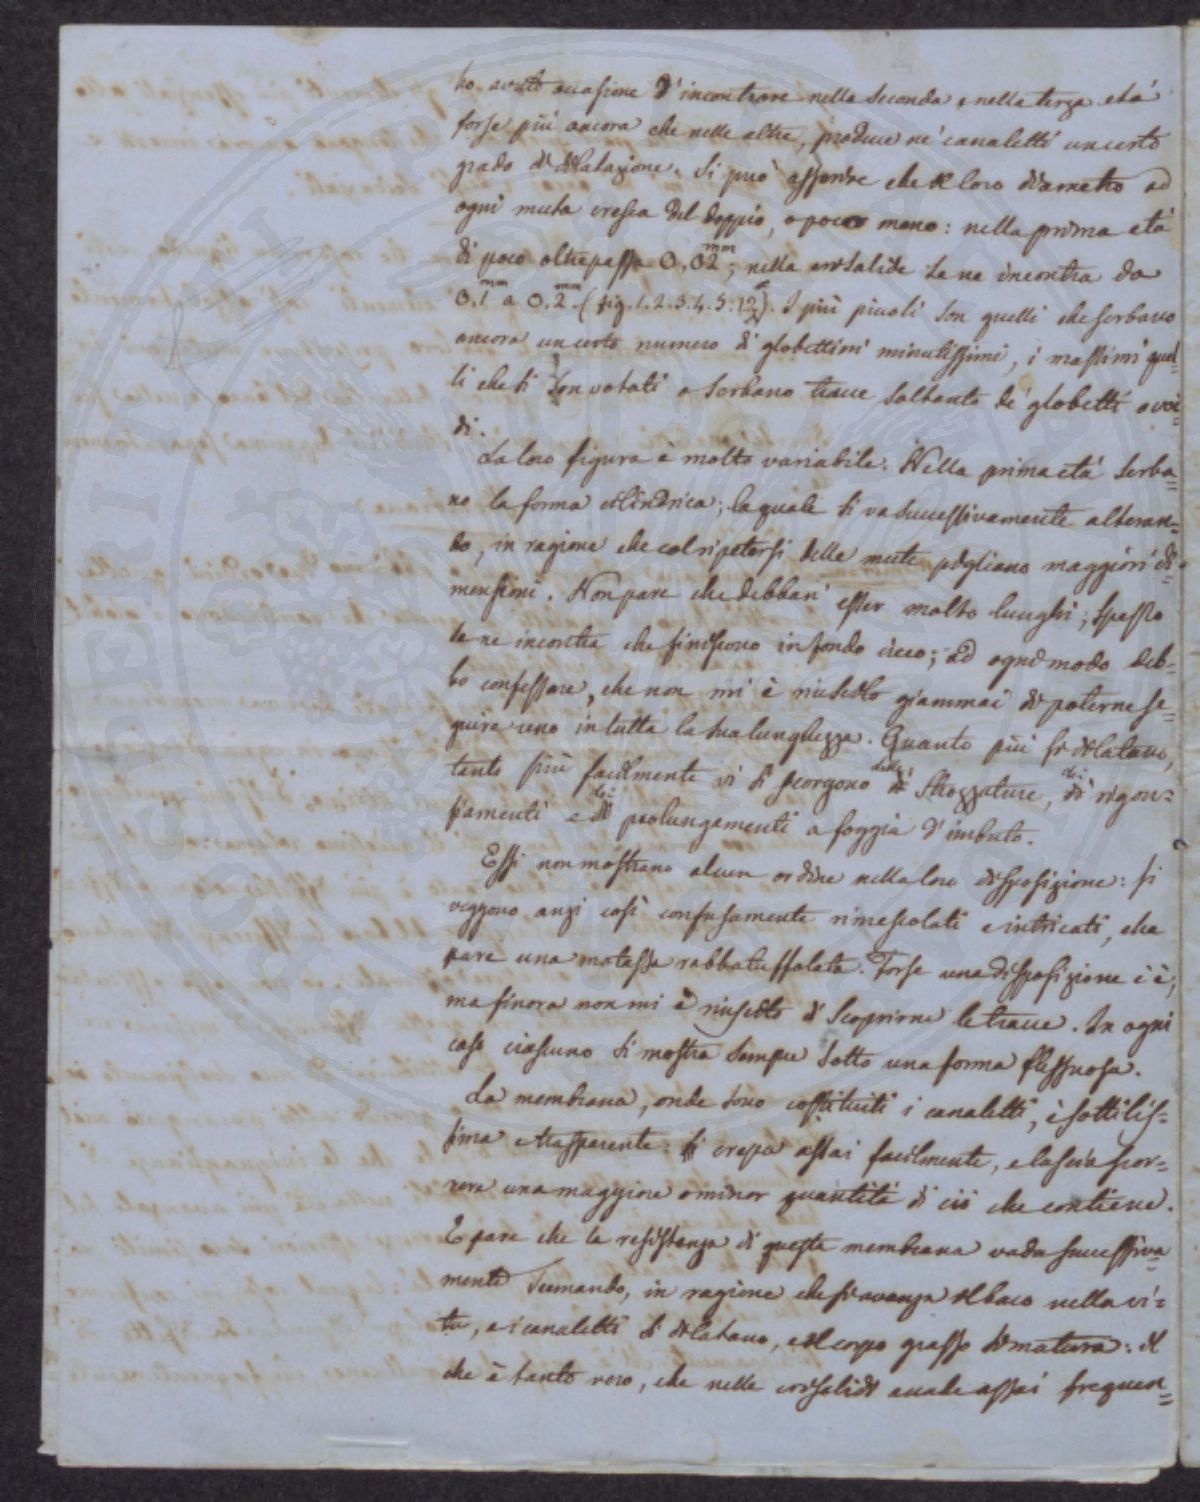 ho avuto occasione d'incontrare nella seconda e nella terza età
forse più ancora che nelle altre, produce ne' canaletti un certo
grado di dilatazione. Si può asserire che il loro diametro ad
ogni muta cresca del doppio, o poco meno: nella prima età
di poco oltrepassa 0,02mm; nella crisalide se ne incontra da
0.1mm a 0.2mm. (fig. 1. 2. 3. 4. 5. 12). I più piccoli son quelli che serbano
ancora un certo numero di globettini minutissimi, i massimi quel=
li che si son votati o serbano tracce soltanto de' globetti ovoi=
di.
La loro figura è molto variabile. Nella prima età serba=
no la forma cilindrica; la quale si va successivamente alteran=
do, in ragione che col ripetersi delle mute pigliano maggiori di=
mensioni. Non pare che debban' esser molto lunghi; spesso
se ne incontra che finiscono in fondo cieco; ad ogni modo deb=
bo confessare, che non mi è riuscito giammai di poterne se=
guire uno in tutta la sua lunghezza. Quanto più si dilatano,
tanto più facilmente vi si scorgono delle strozzature, dei rigon=
fiamenti e dei prolungamenti a foggia d'imbuto.
Essi non mostrano alcun ordine nella loro disposizione: si
veggono anzi così confusamente rimescolati e intricati, che
pare una matassa rabbatuffolata. Forse una disposizione c'è;
ma finora non mi è riuscito di scoprirne le tracce. In ogni
caso ciascuno si mostra sempre sotto una forma flessuosa.
La membrana, onde sono costituiti i canaletti, è sottilis=
sima e trasparente: si crepa assai facilmente, e lascia scor=
rere una maggiore o minor quantità di ciò che contiene.
E pare che la resistenza di questa membrana vada successiva
mente scemando, in ragione che si avanza il baco nella vi=
ta, e i canaletti si dilatano, e il corpo grasso si matura: il
che è tanto vero, che nelle crisalidi accade assai frequen=